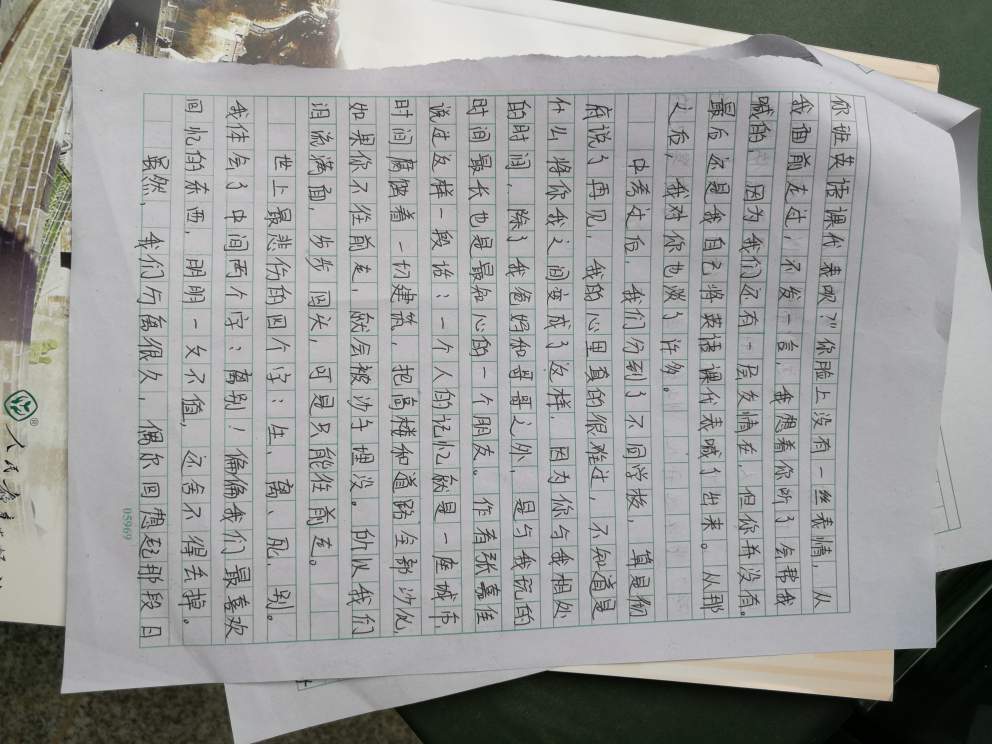 你班英语课代表呗？”你脸上没有一丝表情，从
我面前走过，不发一言，我想着你听了会帮我
喊的，因为我们还有一层友情在，但你并没有。
最后还是我自己将英语课代表喊了出来。从那
之后，我对你也淡了许多。
中考过后，我们分到了不同学校，算是彻
底说了再见，我的心里真的很难过，不知道是
什么将你我之间变成了这样，因为你与我相处
的时间，除了我爸妈和哥哥之外，是与我玩的
时间最长也是最知心的一个朋友。作者张嘉佳
说过这样一段话：一个人的记忆就是一座城市，
时间腐蚀着一切建筑，把高楼和道路全部沙化，
如果你不往前走，就会被沙子埋没。所以我们
泪流满面，步步回头，可是只能往前走。
世上最悲伤的四个字：生、离、死、别。
我体会了中间两个字：离别！偏偏我们最喜欢
回忆的东西，明明一文不值，还舍不得丢掉。
虽然，我们分离很久，偶尔回想起那段日
05969
人民